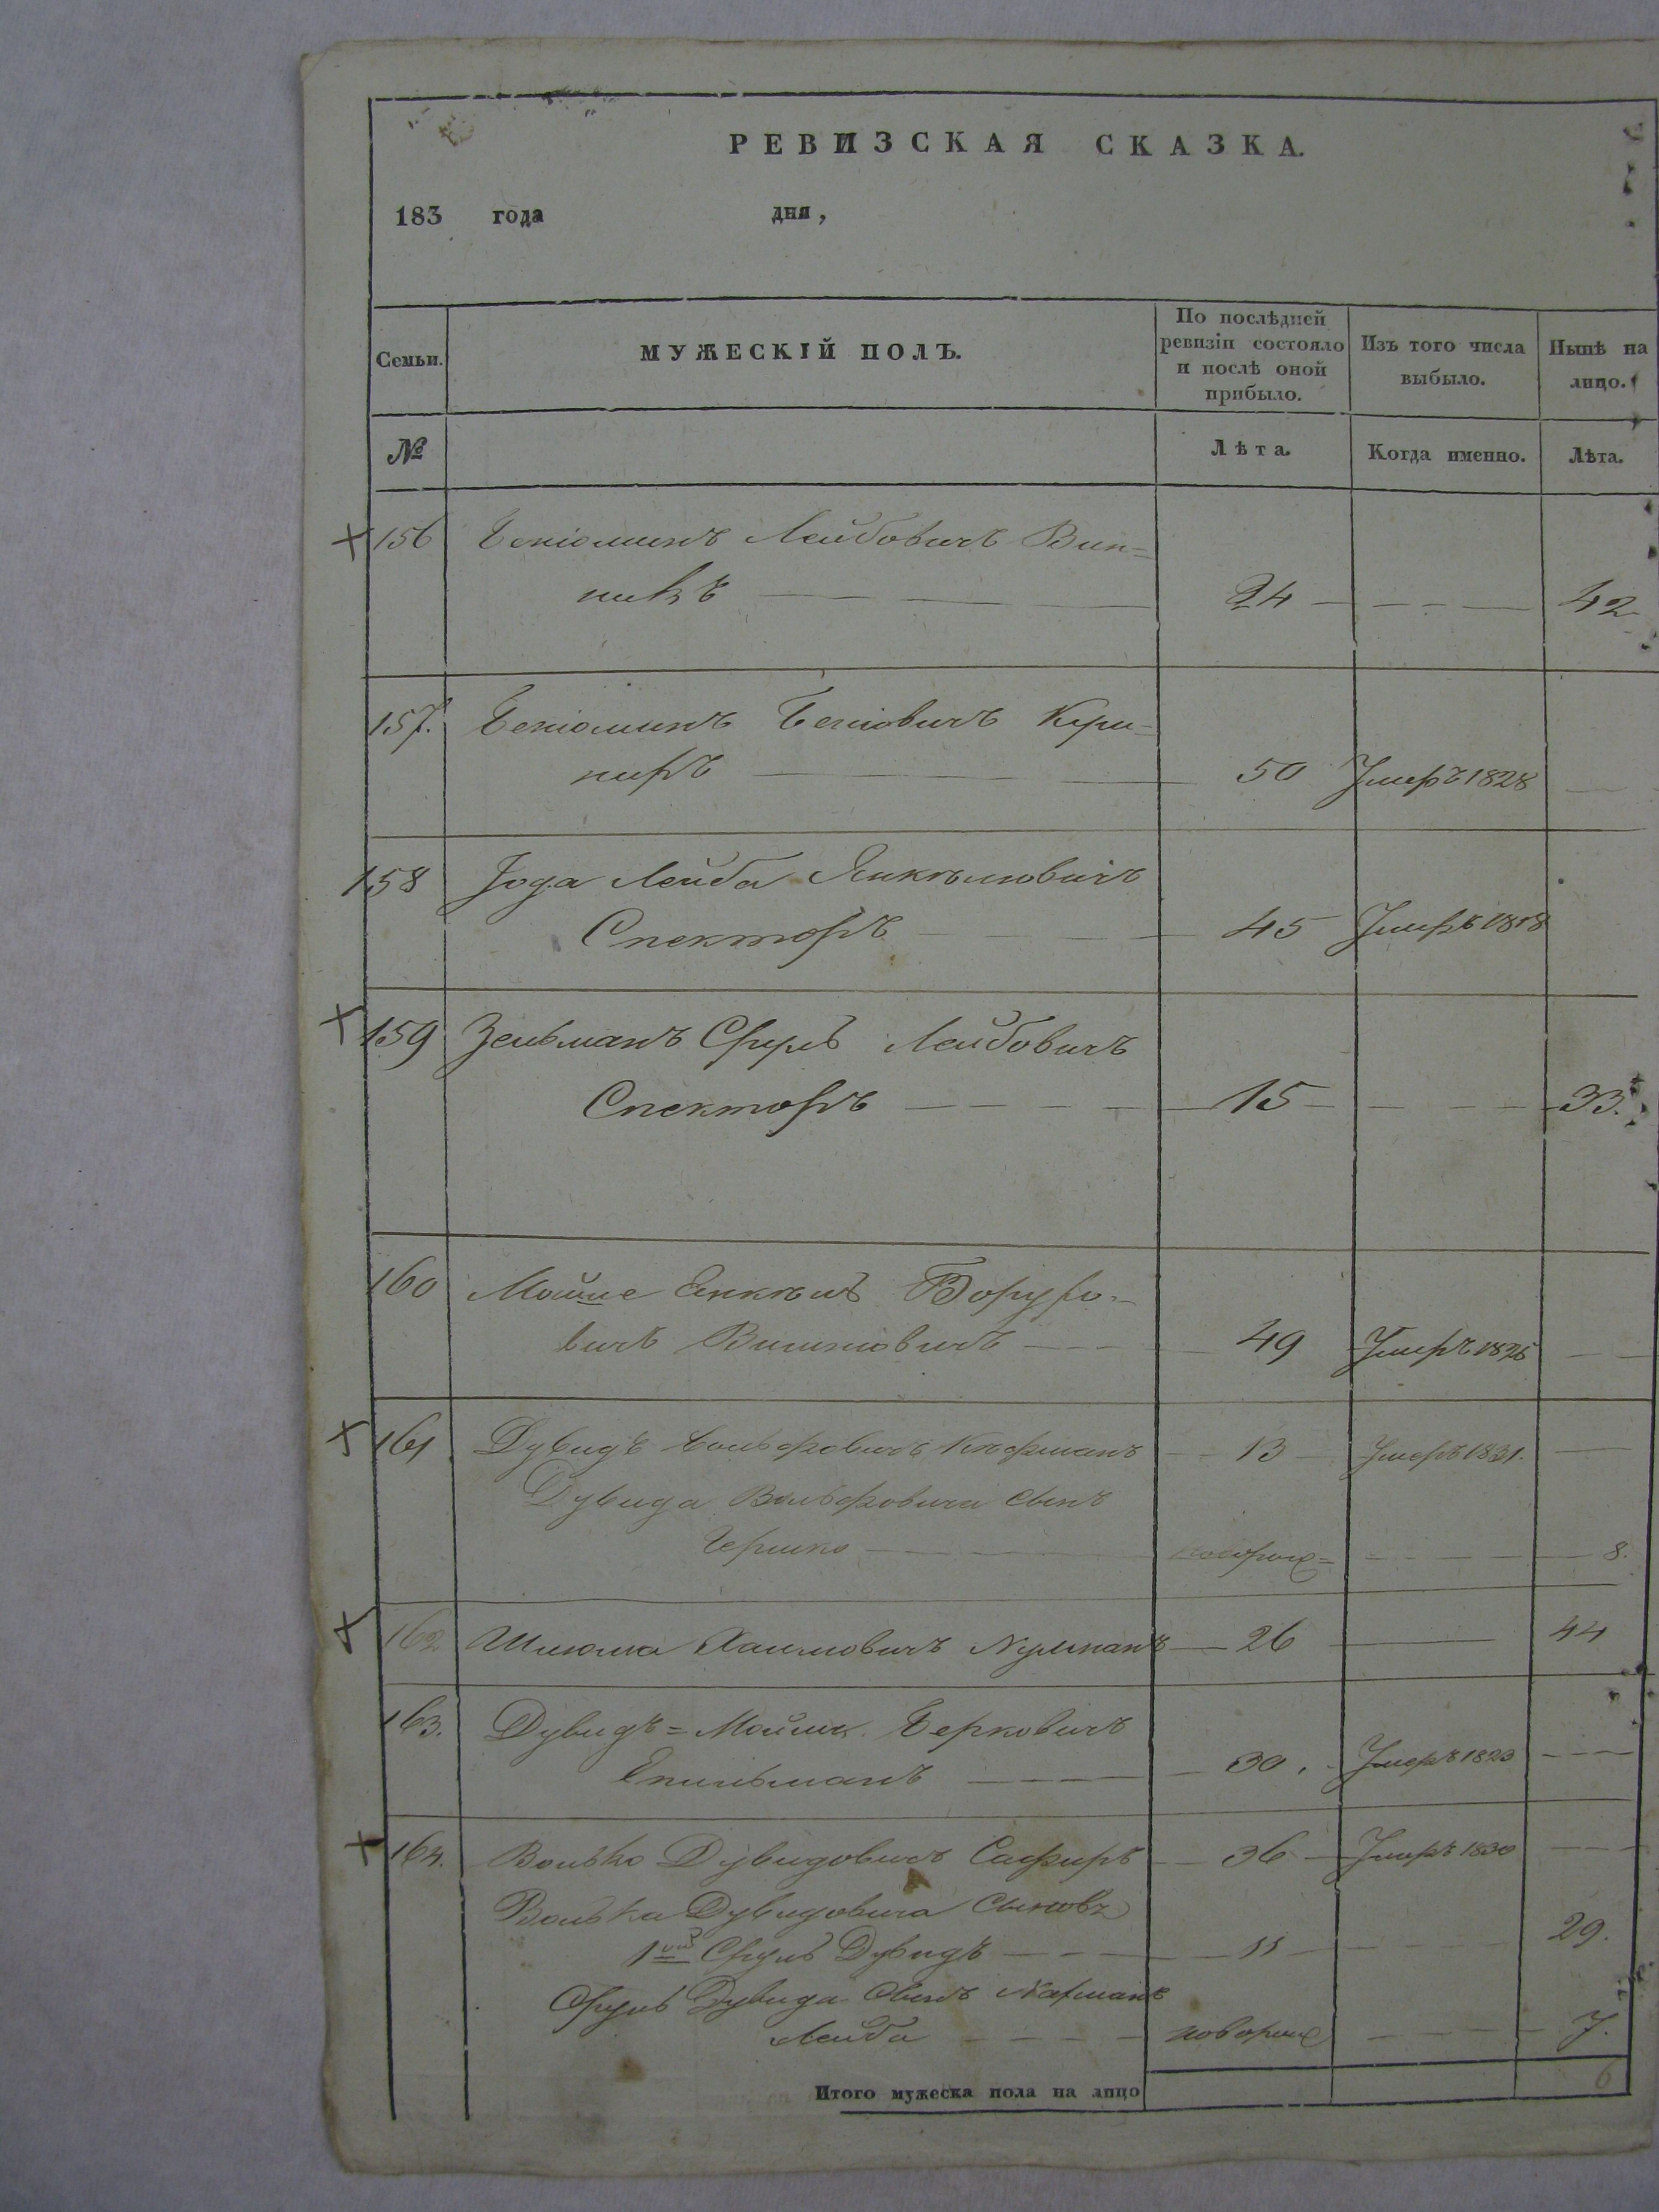 РЕВИЗСКАЯ СКАЗКА.
183 года дня,
Семьи.
МУЖЕСКІЙ ПОЛЪ.
По послѣдней ревизіи состояло и послѣ оной прибыло.
Изъ того числа выбыло.
Нынѣ на лицо.
№
Лѣта.
Когда именно.
Лѣта.
156 Беніоминъ Лейбовичъ Вин=
никъ 24 42
157. Беніоминъ Беніовичъ
50 Умеръ 1828
158 Іода Лейба Янкелювичъ
Спекторъ 45 Умеръ 1818
159 Зельманъ Сруль Лейбовичъ
Спекторъ 15 33.
160 Мойше Борухо=
вичъ 49 Умеръ 1825
161 Дувидъ Вольфовичъ 13 Умеръ 1831.
Дувида Вольфовича сынъ
Гершко новорож= 8.
162 Шлюма Хаимовичъ 26 44
163. Дувидъ=Мошко Берковичъ
30. Умеръ 1823
164. Волько Дувидовичъ Сафиръ 36 Умеръ 1830
Волька Дувидовича сыновья
1ый Сруль Дувидъ 11 29.
Сруль Дувида сынъ Нахманъ
Лейба новорож 7.
Итого мужеска пола на лицо 6